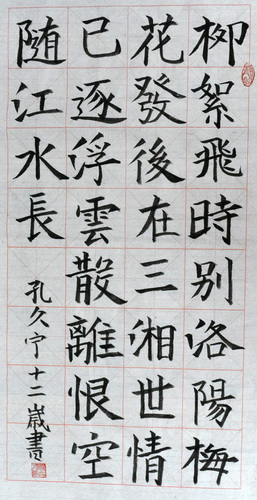 柳絮飛時别洛陽梅
花發後在三湘世情
已逐浮雲散離恨空
随江水長
孔久宁十二歲書